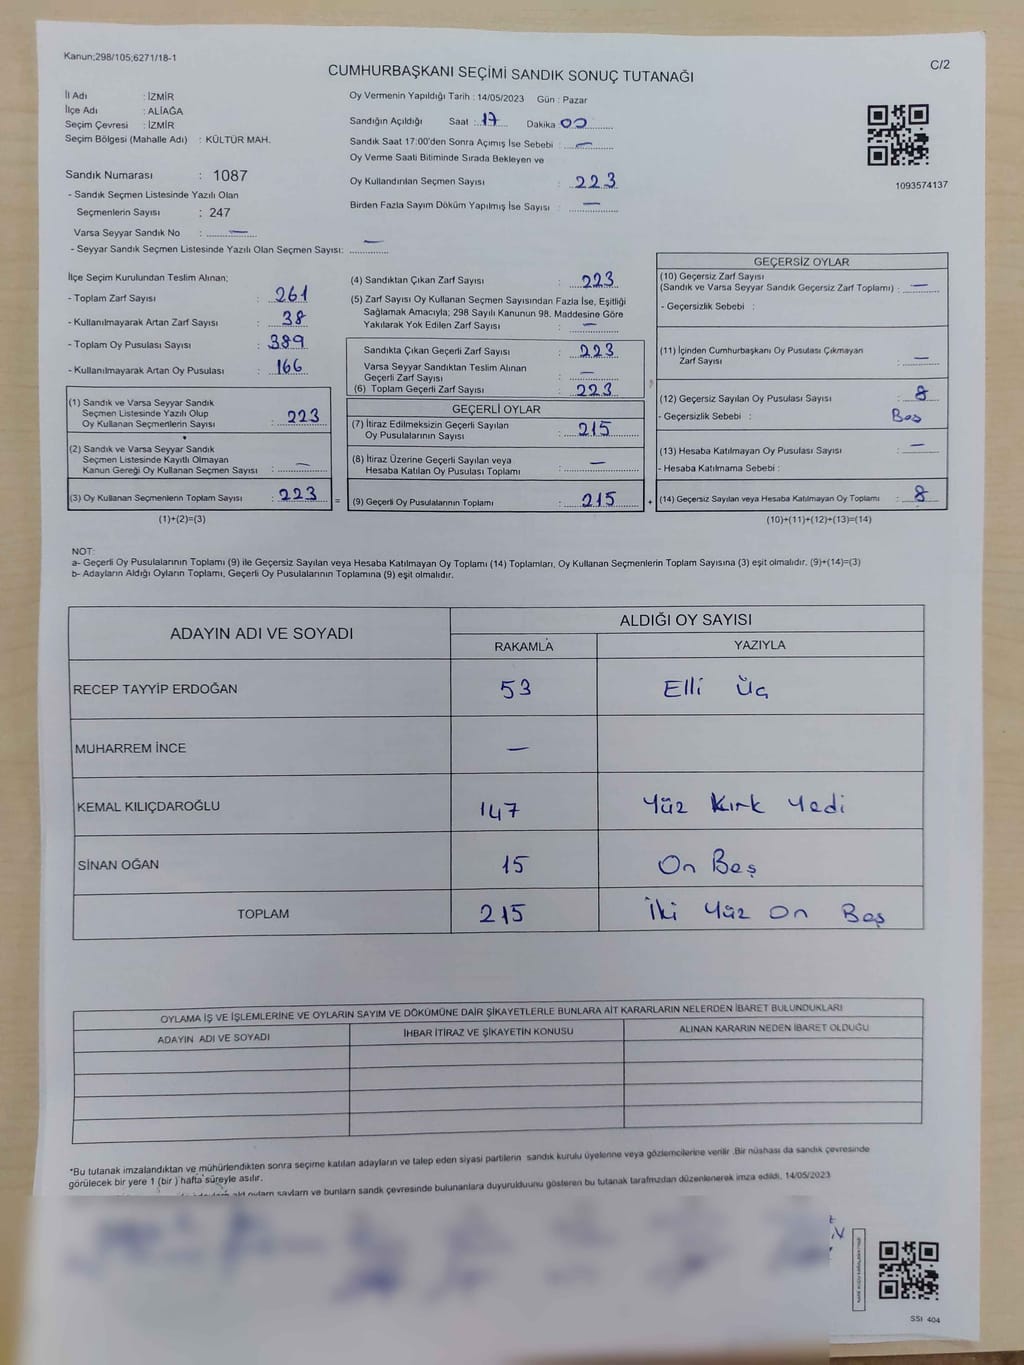 Kanun;298/105;6271/18-1
C/2
CUMHURBAŞKANI SEÇİMİ SANDIK SONUÇ TUTANAĞI
İl Adı : İZMİR
İlçe Adı : ALİAĞA
Seçim Çevresi : İZMİR
Seçim Bölgesi (Mahalle Adı) : KÜLTÜR MAH.
Sandık Numarası : 1087
- Sandık Seçmen Listesinde Yazılı Olan
Seçmenlerin Sayısı : 247
Varsa Seyyar Sandık No : —
- Seyyar Sandık Seçmen Listesinde Yazılı Olan Seçmen Sayısı: —
Oy Vermenin Yapıldığı Tarih : 14/05/2023 Gün : Pazar
Sandığın Açıldığı Saat : 17 Dakika 00
Sandık Saat 17:00'den Sonra Açımış İse Sebebi : —
Oy Verme Saati Bitiminde Sırada Bekleyen ve
Oy Kullandırılan Seçmen Sayısı : 223
Birden Fazla Sayım Döküm Yapılmış İse Sayısı : —
1093574137
İlçe Seçim Kurulundan Teslim Alınan;
- Toplam Zarf Sayısı : 261
- Kullanılmayarak Artan Zarf Sayısı : 38
- Toplam Oy Pusulası Sayısı : 389
- Kullanılmayarak Artan Oy Pusulası : 166
(1) Sandık ve Varsa Seyyar Sandık
Seçmen Listesinde Yazılı Olup
Oy Kullanan Seçmenlerin Sayısı : 223
(2) Sandık ve Varsa Seyyar Sandık
Seçmen Listesinde Kayıtlı Olmayan
Kanun Gereği Oy Kullanan Seçmen Sayısı : —
(3) Oy Kullanan Seçmenlerin Toplam Sayısı : 223 =
(1)+(2)=(3)
(4) Sandıktan Çıkan Zarf Sayısı : 223
(5) Zarf Sayısı Oy Kullanan Seçmen Sayısından Fazla İse, Eşitliği
Sağlamak Amacıyla; 298 Sayılı Kanunun 98. Maddesine Göre
Yakılarak Yok Edilen Zarf Sayısı : —
Sandıkta Çıkan Geçerli Zarf Sayısı : 223
Varsa Seyyar Sandıktan Teslim Alınan
Geçerli Zarf Sayısı : —
(6) Toplam Geçerli Zarf Sayısı : 223
GEÇERLİ OYLAR
(7) İtiraz Edilmeksizin Geçerli Sayılan
Oy Pusulalarının Sayısı : 215
(8) İtiraz Üzerine Geçerli Sayılan veya
Hesaba Katılan Oy Pusulası Toplamı : —
(9) Geçerli Oy Pusulalarının Toplamı : 215 +
GEÇERSİZ OYLAR
(10) Geçersiz Zarf Sayısı
(Sandık ve Varsa Seyyar Sandık Geçersiz Zarf Toplamı) : —
- Geçersizlik Sebebi :
(11) İçinden Cumhurbaşkanı Oy Pusulası Çıkmayan
Zarf Sayısı : —
(12) Geçersiz Sayılan Oy Pusulası Sayısı : 8
- Geçersizlik Sebebi : Boş
(13) Hesaba Katılmayan Oy Pusulası Sayısı : —
- Hesaba Katılmama Sebebi :
(14) Geçersiz Sayılan veya Hesaba Katılmayan Oy Toplamı : 8
(10)+(11)+(12)+(13)=(14)
NOT:
a- Geçerli Oy Pusulalarının Toplamı (9) ile Geçersiz Sayılan veya Hesaba Katılmayan Oy Toplamı (14) Toplamları, Oy Kullanan Seçmenlerin Toplam Sayısına (3) eşit olmalıdır. (9)+(14)=(3)
b- Adayların Aldığı Oyların Toplamı, Geçerli Oy Pusulalarının Toplamına (9) eşit olmalıdır.
ADAYIN ADI VE SOYADI
ALDIĞI OY SAYISI
RAKAMLA YAZIYLA
RECEP TAYYİP ERDOĞAN 53 Elli Üç
MUHARREM İNCE —
KEMAL KILIÇDAROĞLU 147 Yüz Kırk Yedi
SİNAN OĞAN 15 On Beş
TOPLAM 215 İki Yüz On Beş
OYLAMA İŞ VE İŞLEMLERİNE VE OYLARIN SAYIM VE DÖKÜMÜNE DAİR ŞİKAYETLERLE BUNLARA AİT KARARLARIN NELERDEN İBARET BULUNDUKLARI
ADAYIN ADI VE SOYADI İHBAR İTİRAZ VE ŞİKAYETİN KONUSU ALINAN KARARIN NEDEN İBARET OLDUĞU
*Bu tutanak imzalandıktan ve mühürlendikten sonra seçime katılan adayların ve talep eden siyasi partilerin sandık kurulu üyelerine veya gözlemcilerine verilir .Bir nüshası da sandık çevresinde
görülecek bir yere 1 (bir ) hafta süreyle asılır.
sandık çevresinde bulunanlara duyurulduunu gösteren bu tutanak tarafımızdan düzenlenerek imza edildi. 14/05/2023
SSI 404